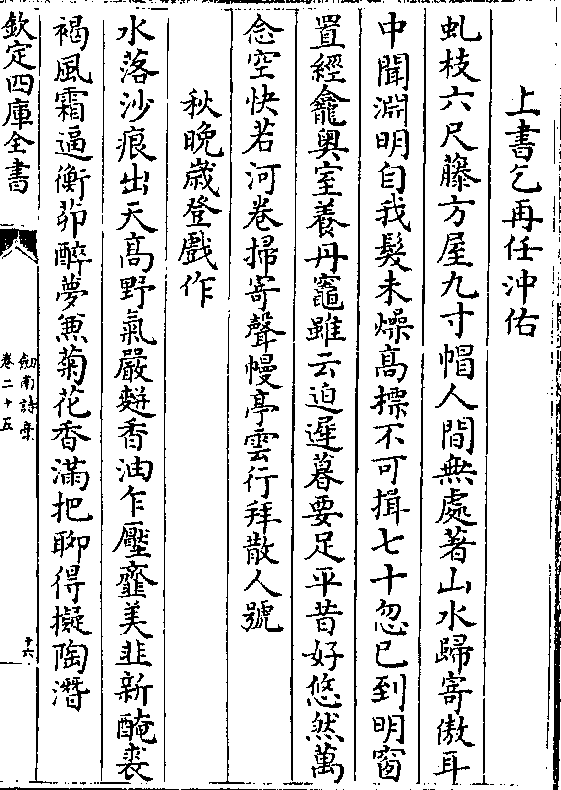 上書乞再任沖佑
虬枝六尺藤方屋九寸帽人間無處著山水歸寄傲耳
中聞淵明自我髮未燥高摽不可揖七十忽已到明窗
置經龕奥室養丹竈雖云迫遲暮要足平昔好悠然萬
念空快若河卷掃寄聲幔亭雲行拜散人號
秋晚歲登戲作
水落沙痕出天髙野氣嚴䴵香油乍壓虀美韭新醃裘
褐風霜逼衡茆醉夢兼菊花香滿把聊得擬陶潛
欽定四庫全書
劍南詩藁
卷二十五
十六